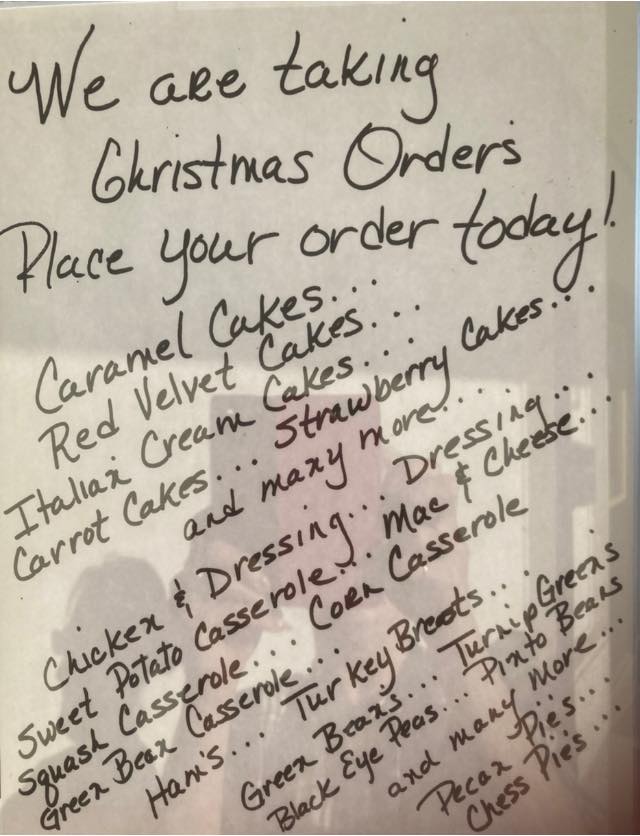 We are taking
Christmas Orders
Place your order today!
Caramel Cakes...
Red Velvet Cakes...
Italian Cream Cakes...
Carrot Cakes... Strawberry Cakes...
and many more....
Chicken & Dressing... Dressing...
Sweet Potato Casserole... Mac & Cheese...
Squash Casserole... Corn Casserole
Green Bean Casserole...
Ham's... Turkey Breasts...
Green Beans... Turnip Greens
Black Eye Peas... Pinto Beans
and many more...
Pecan Pies...
Chess Pies...